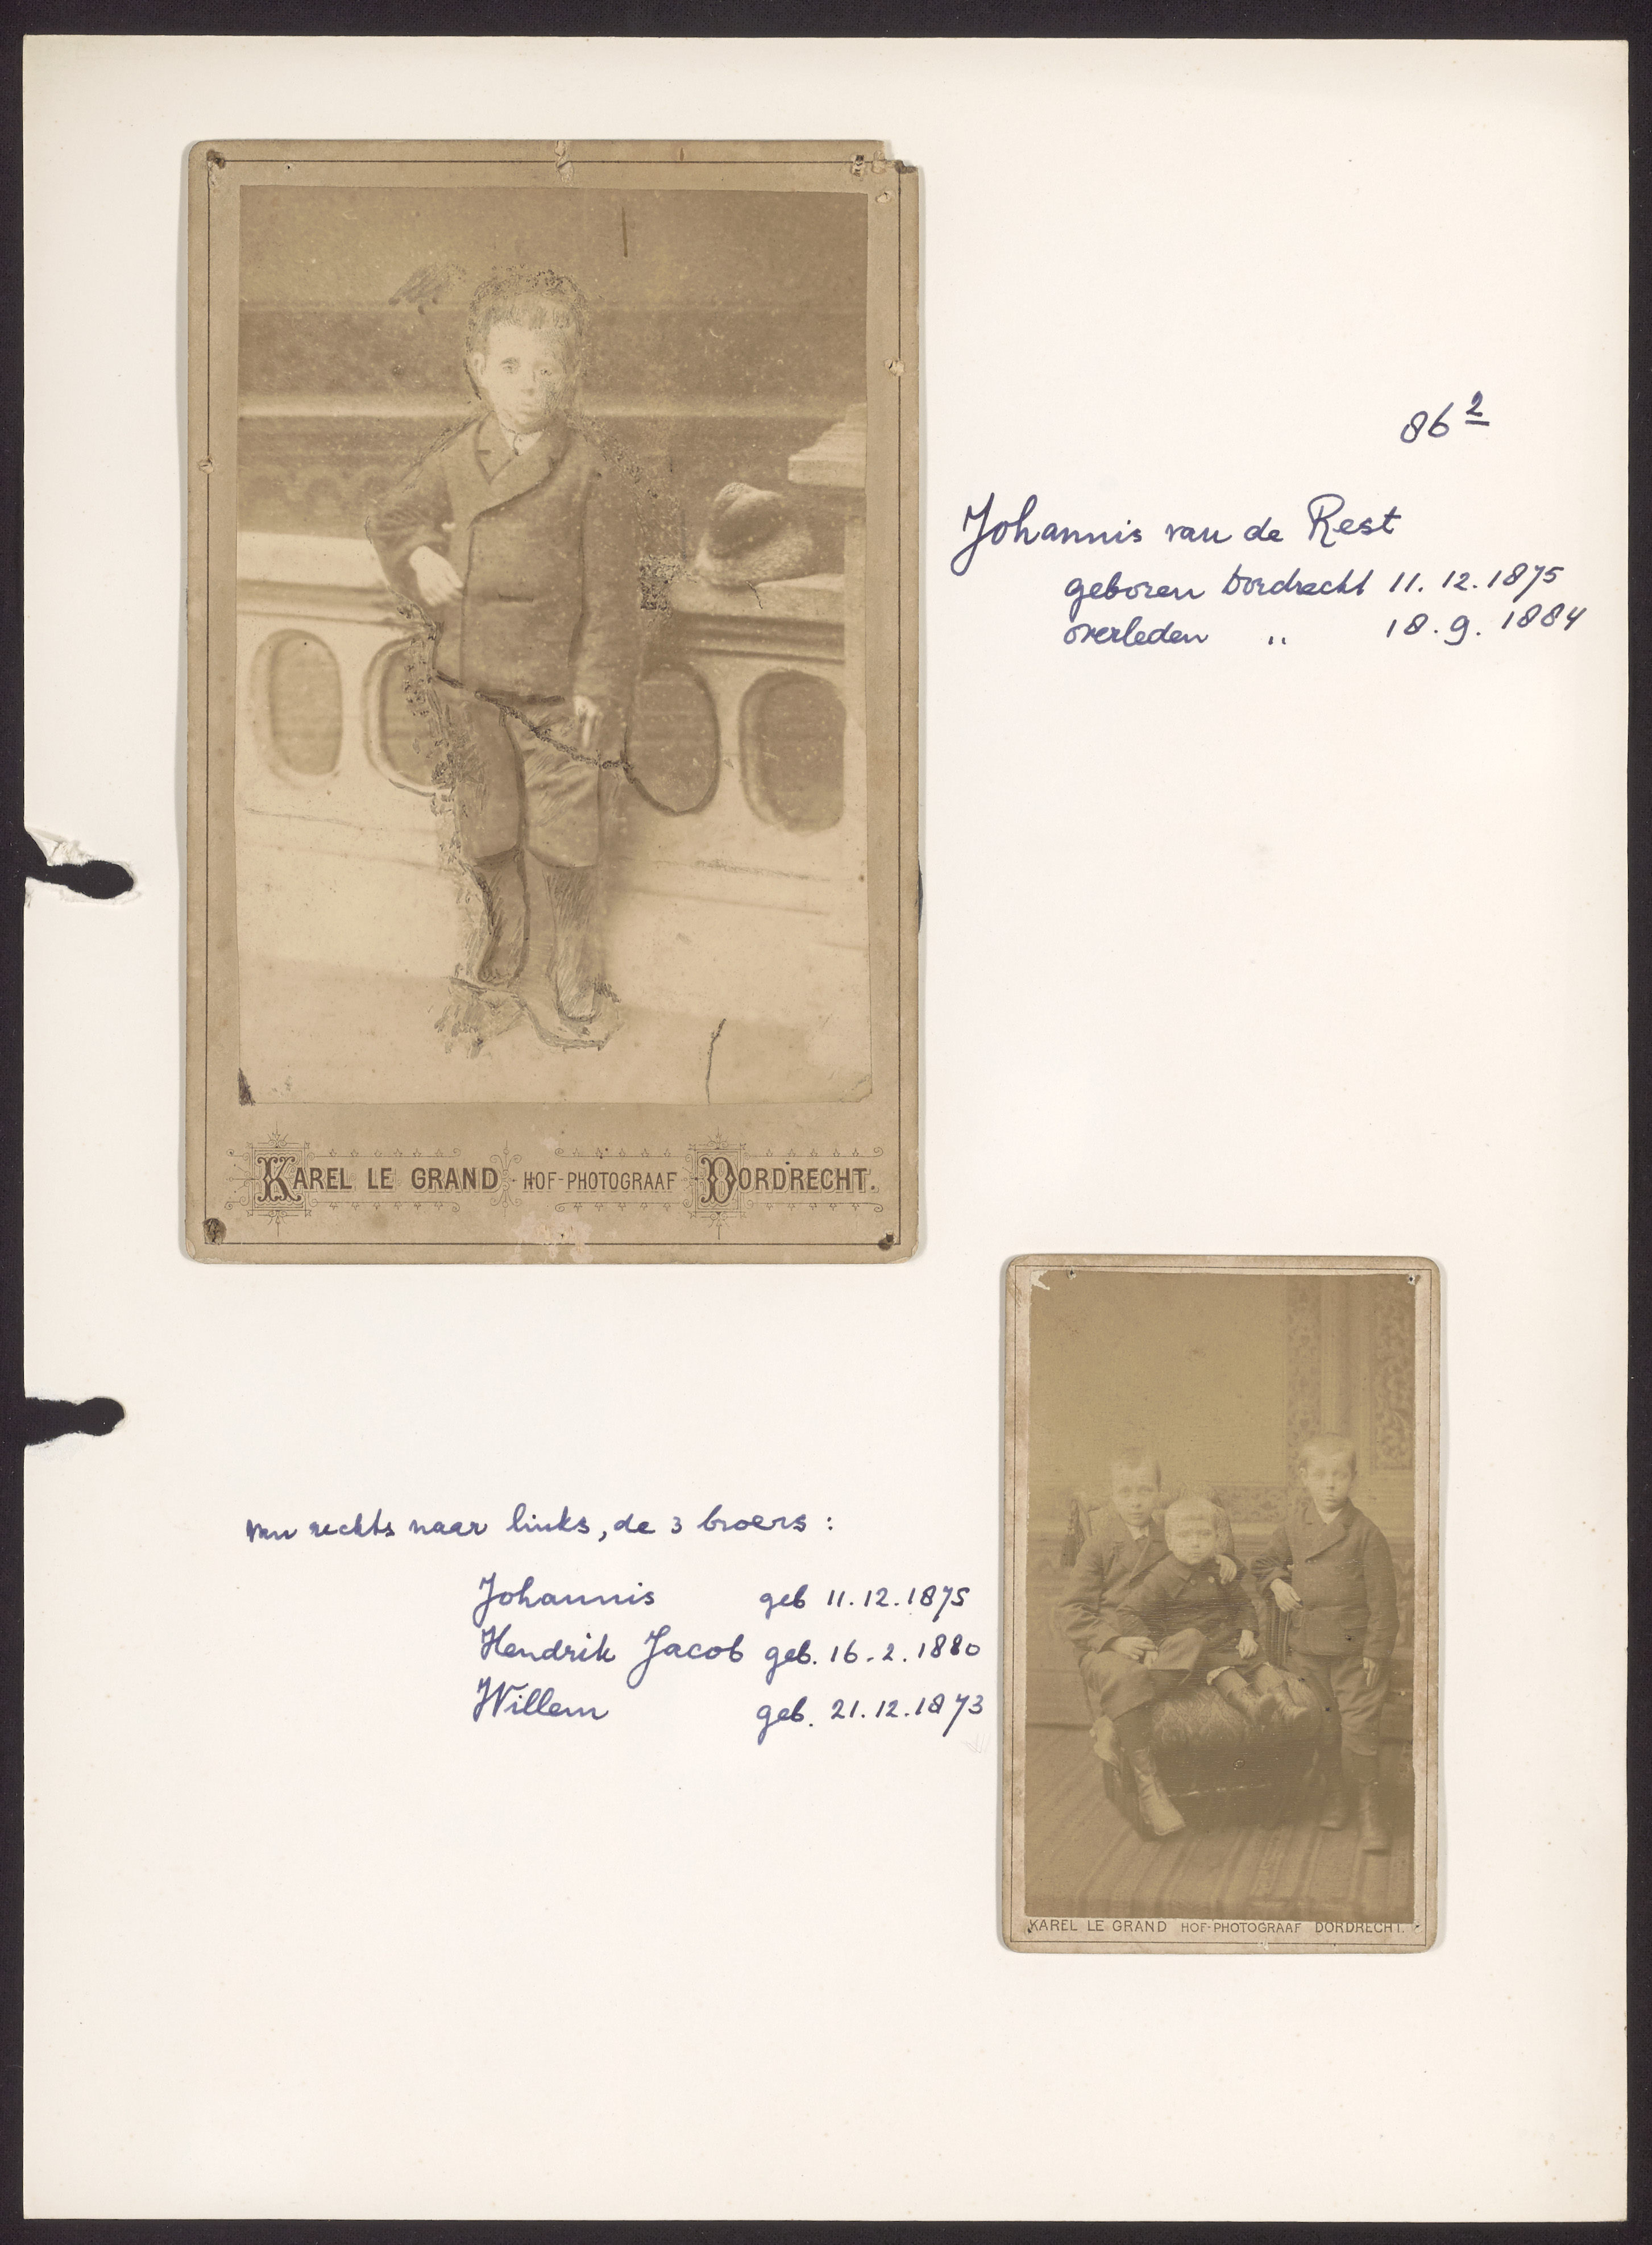 86 2
Johannis van de Rest
geboren Dordrecht 11.12.1875
overleden " 18.9.1884
KAREL LE GRAND HOF-PHOTOGRAAF DORDRECHT.
van rechts naar links, de 3 broers :
Johannis geb 11.12.1875
Hendrik Jacob geb. 16.2.1880
Willem geb. 21.12.1873
KAREL LE GRAND HOF-PHOTOGRAAF DORDRECHT.